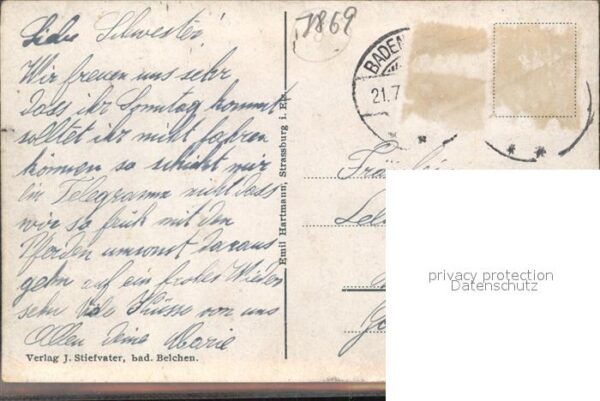 Liebe Schwester
Wir freuen uns sehr
dass ihr Sonntag kommt
solltet ihr nicht fahren
können so schickt mir
ein Telegramm nicht dass
wir so früh mit den
Pferden umsonst daraus
gehn auf ein frohes Wieder
sehn viele Küsse von uns
Allen Deine Marie
Verlag J. Stiefvater, bad. Belchen.
Emil Hartmann, Strassburg i. Els.
7869
BADEN
21.7
Fräulein
privacy protection
Datenschutz